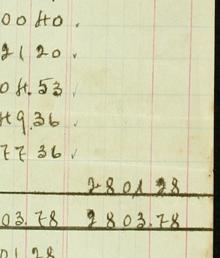 00 40.
21 20
04.53
49.36
77 36
2801 28
03.78 2803.78
01 28